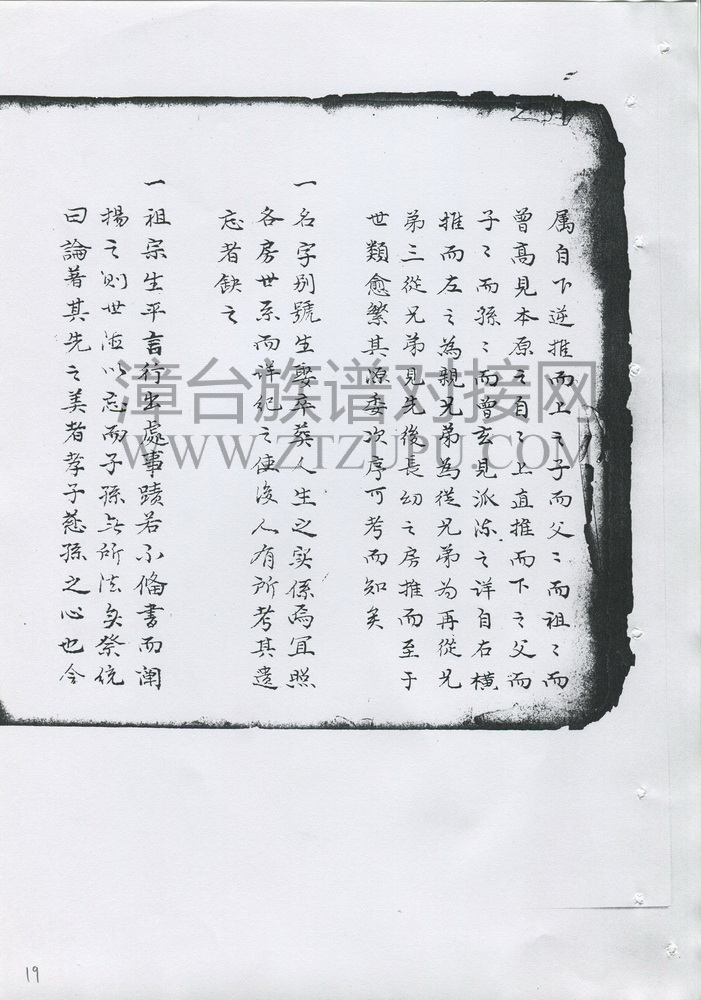 属自下逆推而上之子而父〻而祖〻而
曾高見本原之自〻上直推而下之父而
子〻而孫〻而曾玄見派流之详自右横
推而左之為親兄弟為従兄弟为再從兄
弟三從兄弟見先後長幼之房推而至于
世類愈繁其源委次序可考而知矣
一名字别號生娶卒葵人生之实係焉宜照
各房世系而详紀之使後人有所考其遺
忘者缺之
一祖宗生平言行出處事蹟若不俻書而阐
揚之则世逺以忘而子孫無所法矣祭统
曰論著其先之美者孝子慈孫之心也今
漳台族谱对接网
WWW.ZTZUPU.COM
19